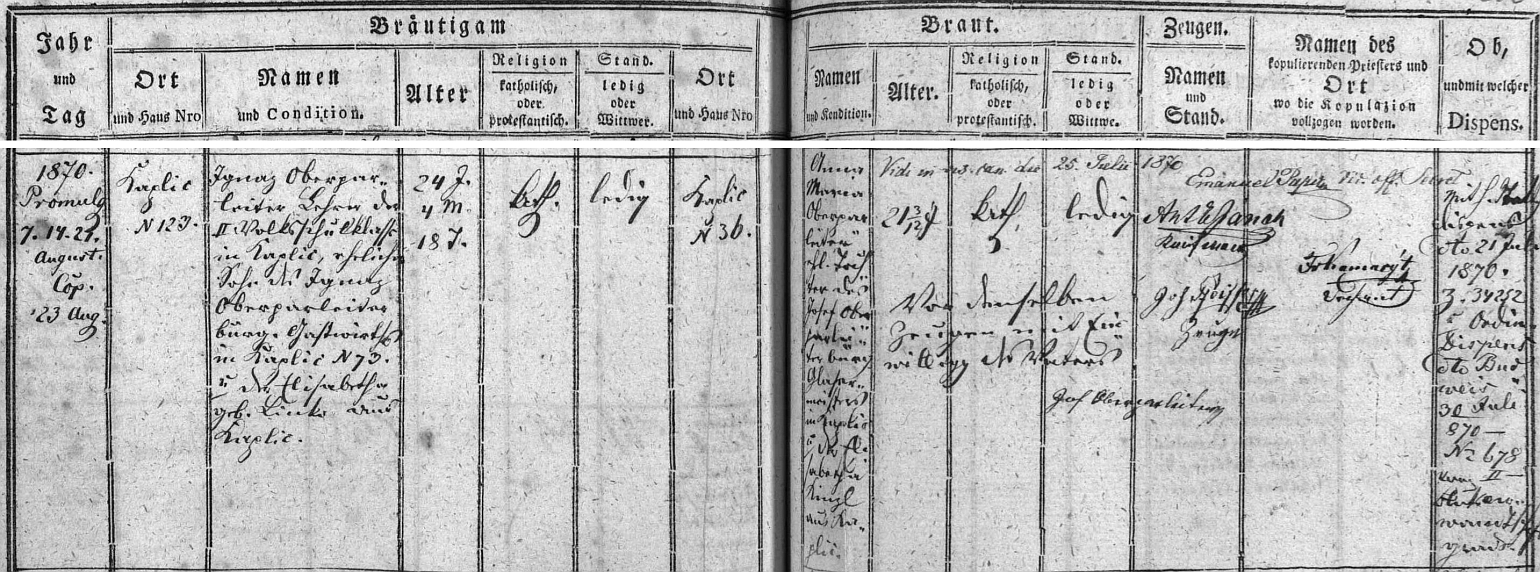 Jahr
und
Tag
Bräutigam
Ort
und Haus Nro
Namen
und Condition.
Alter
Religion
katholisch,
oder
protestantisch.
Stand.
ledig
oder
Wittwer.
Ort
und Haus Nro
Braut.
Namen
und Kondition.
Alter.
Religion
katholisch,
oder
protestantisch.
Stand.
ledig
oder
Wittwe.
Zeugen.
Namen
und
Stand.
Namen des
kopulierenden Priesters und
Ort
wo die Kopulazion
vollzogen worden.
Ob,
und mit welcher
Dispens.
1870.
Promulg
7. 14. 21.
August.
Cop.
23 Aug.
Kaplic
N 123.
Ignaz Oberpar-
leiter Lehrer der
II Volksschulklasse
in Kaplic, ehelicher
Sohn des Ignaz
Oberparleiter
bürg. Gastwirths
in Kaplic N 73.
u der Elisabetha
geb. Linke aus
Kaplic.
24 J.
4 M.
18 T.
kath.
ledig
Kaplic
N 36.
Anna
Maria
Oberpar
leiter
ehl. Toch
ter des
Josef Ober
parlei
ter bürg
Glaser-
meisters
in Kaplic
u. der Eli
sabetha
aus Ka-
plic.
25. Julii 1870
21 3/12 J
kath.
ledig
Von denselben
Zeugen mit Ein
willigg des Vaters
Jos Oberparleitner
Kaufmann
Joh
Zeuge
Emanuel
Dechant
dispens
dto 21 Juli
1870.
Z. 34252
u Ordin
Dispens
dto Bud
weis
30 Juli
870 —
No 678
II
Blutsver
wandtsch
grad.